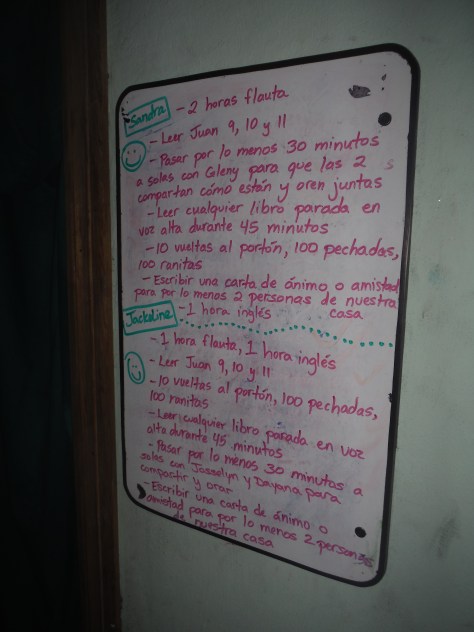 Sandra - 2 horas flauta
- Leer Juan 9, 10 y 11
- Pasar por lo menos 30 minutos
a solas con Celeny para que las 2
compartan cómo están y oren juntas
- Leer cualquier libro parada en
voz alta durante 45 minutos
- 10 vueltas al portón, 100 pechadas,
100 ranitas
- Escribir una carta de ánimo o amistad
para por lo menos 2 personas de nuestra
casa
Jackeline - 1 hora inglés
- 1 hora flauta, 1 hora inglés
- Leer Juan 9, 10 y 11
- 10 vueltas al portón, 100 pechadas,
100 ranitas
- Leer cualquier libro parada en voz
alta durante 45 minutos
- Pasar por lo menos 30 minutos a
solas con Josselyn y Dayana para
compartir y orar
- Escribir una carta de ánimo o
amistad para por lo menos 2 personas
de nuestra casa